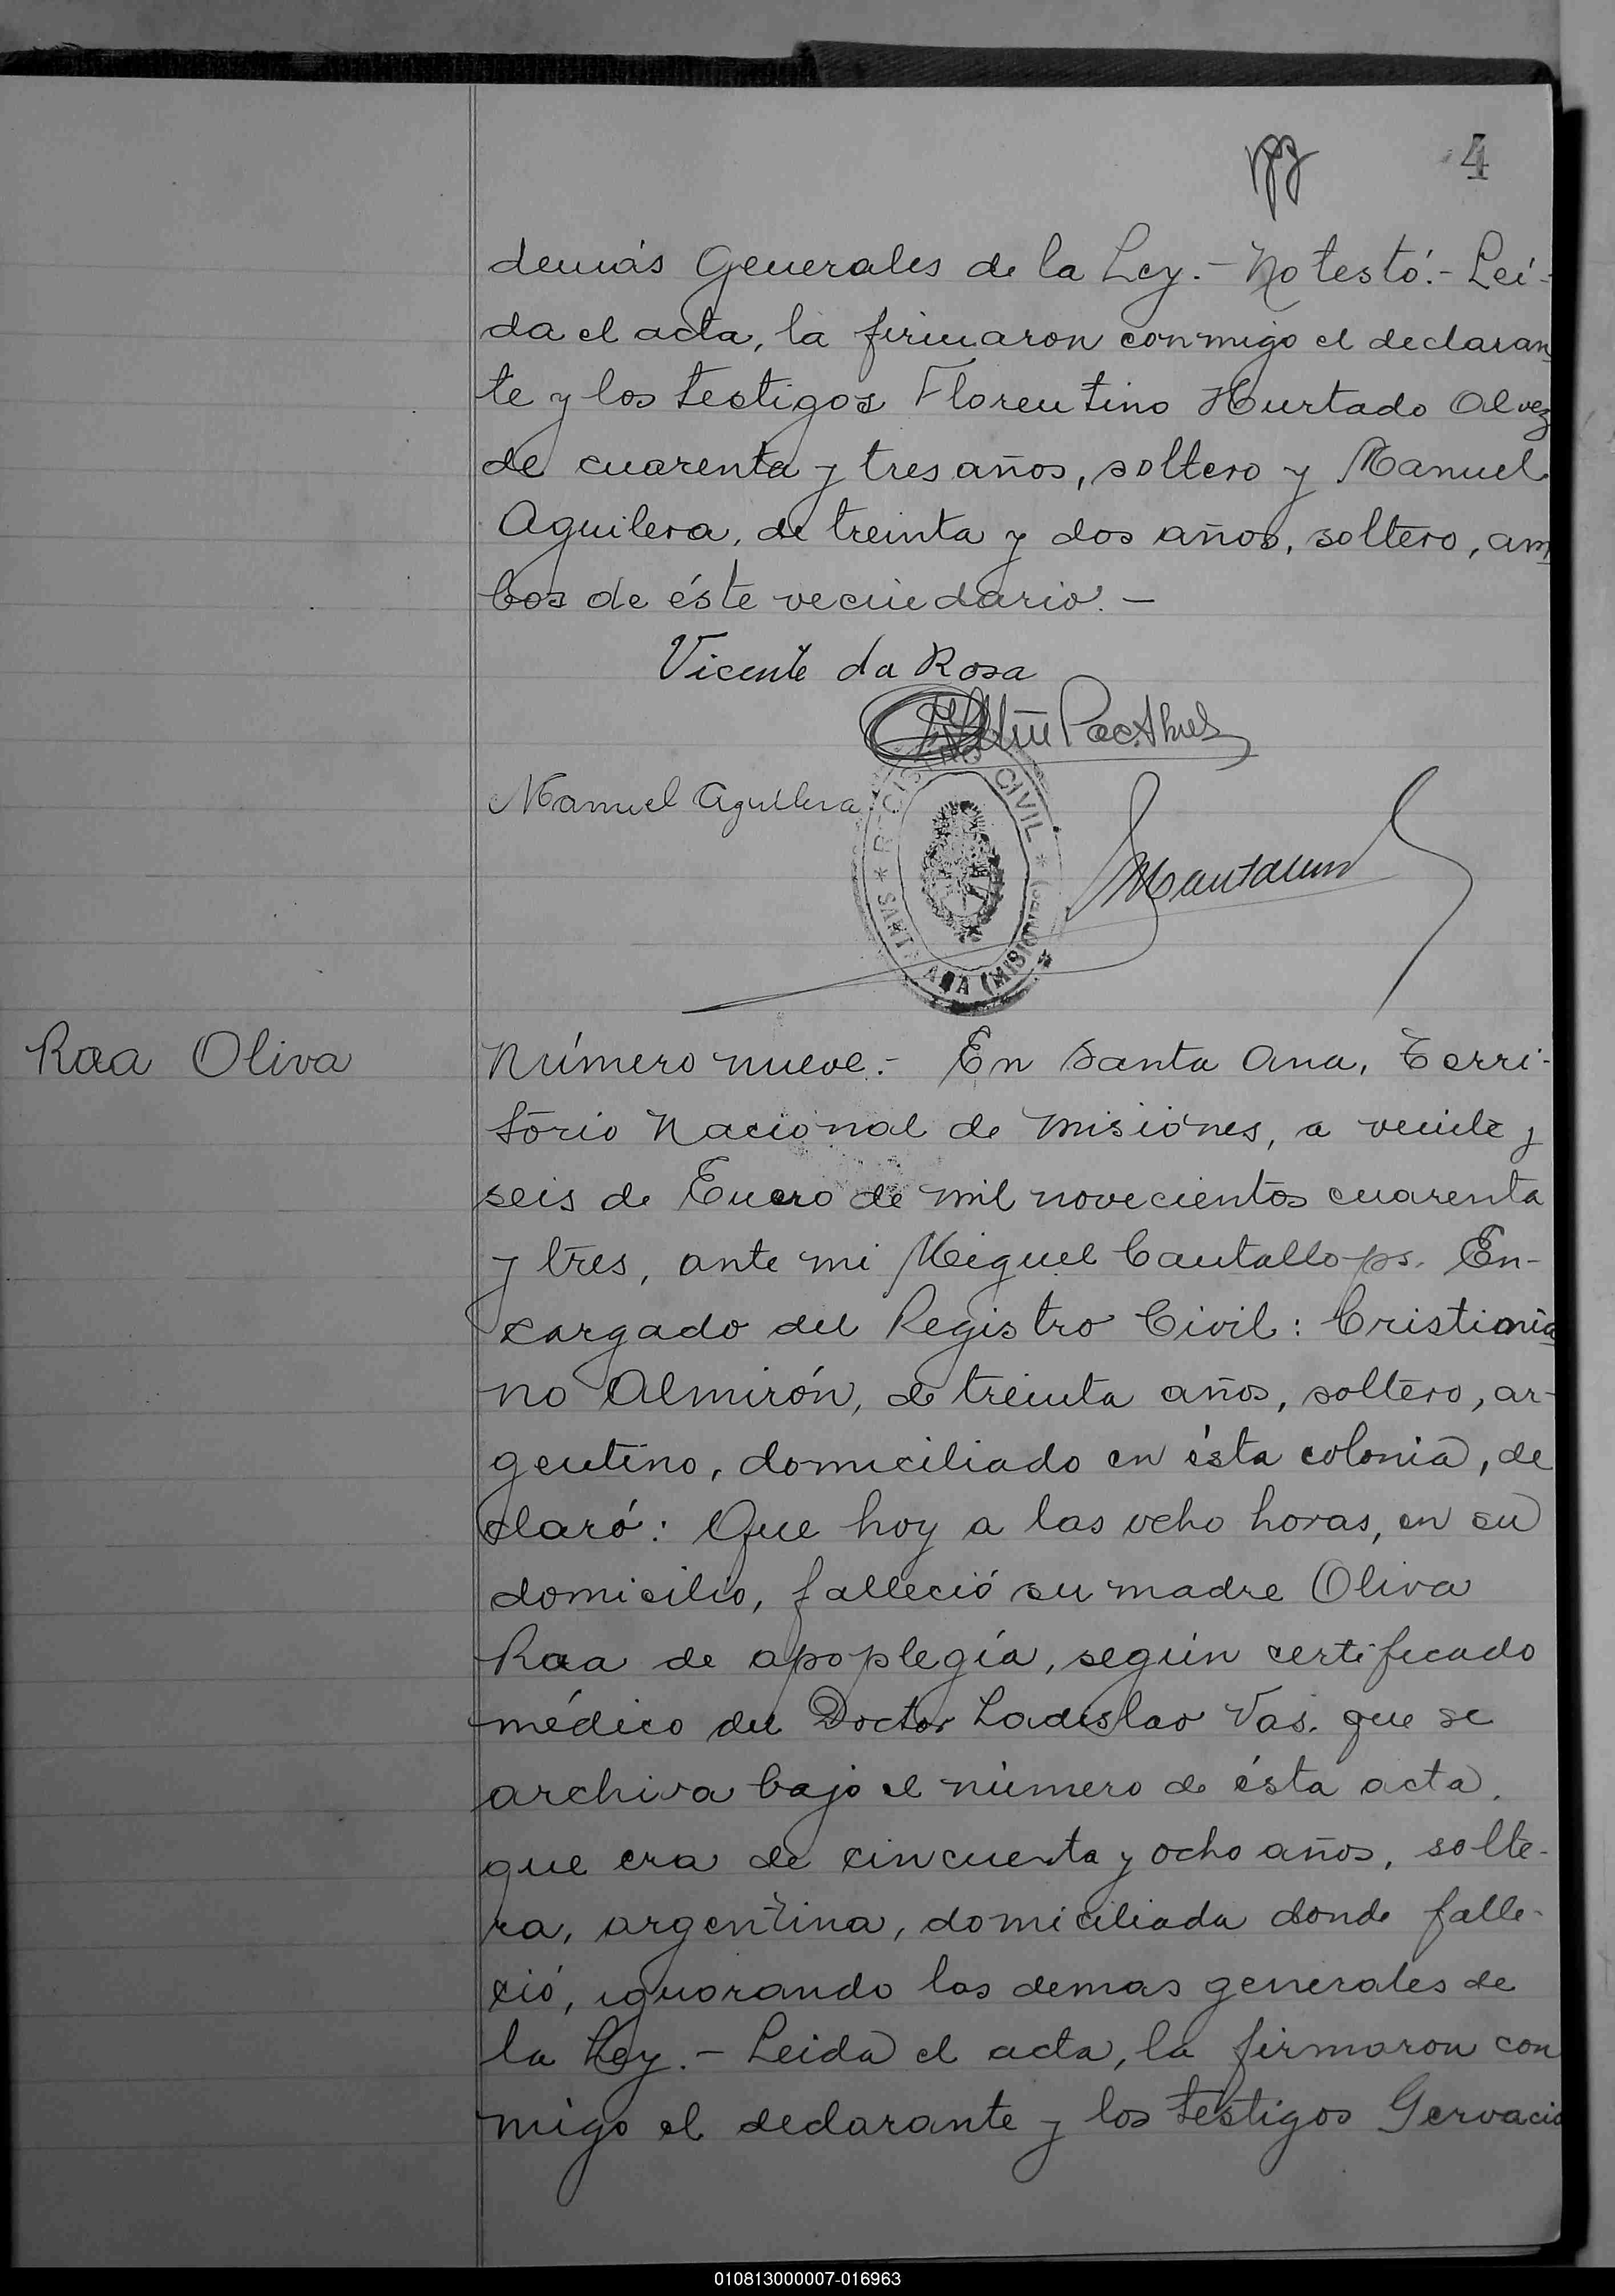 4
demás Generales de la Ley.- No testó.- Leí-
da el acta, la firmaron conmigo el declaran
te y los testigos Florentino Hurtado Alvez
de cuarenta y tres años, soltero y Manuel
Aguilera, de treinta y dos años, soltero, am
bos de éste vecindario.-
Vicente da Rosa
Manuel Aguilera
REGISTRO CIVIL * SANTA ANA (MISIONES) *
Raa Oliva
Número nueve.- En Santa Ana, Terri-
torio Nacional de Misiones, a veinte y
seis de Enero de mil novecientos cuarenta
y tres, ante mi Miguel Cantallops. En-
cargado del Registro Civil: Cristinia
no Almirón, de treinta años, soltero, ar-
gentino, domiciliado en ésta colonia, de
claró: Que hoy a las ocho horas, en su
domicilio, falleció su madre Oliva
Raa de apoplegía, según certificado
médico del Doctor Ladislao Vas. que se
archiva bajo el número de ésta acta.
que era de cincuenta y ocho años, solte-
ra, argentina, domiciliada donde falle-
ció, ignorando las demas generales de
la Ley.- Leida el acta, la firmaron con
migo el declarante y los testigos Gervacio
010813000007-016963